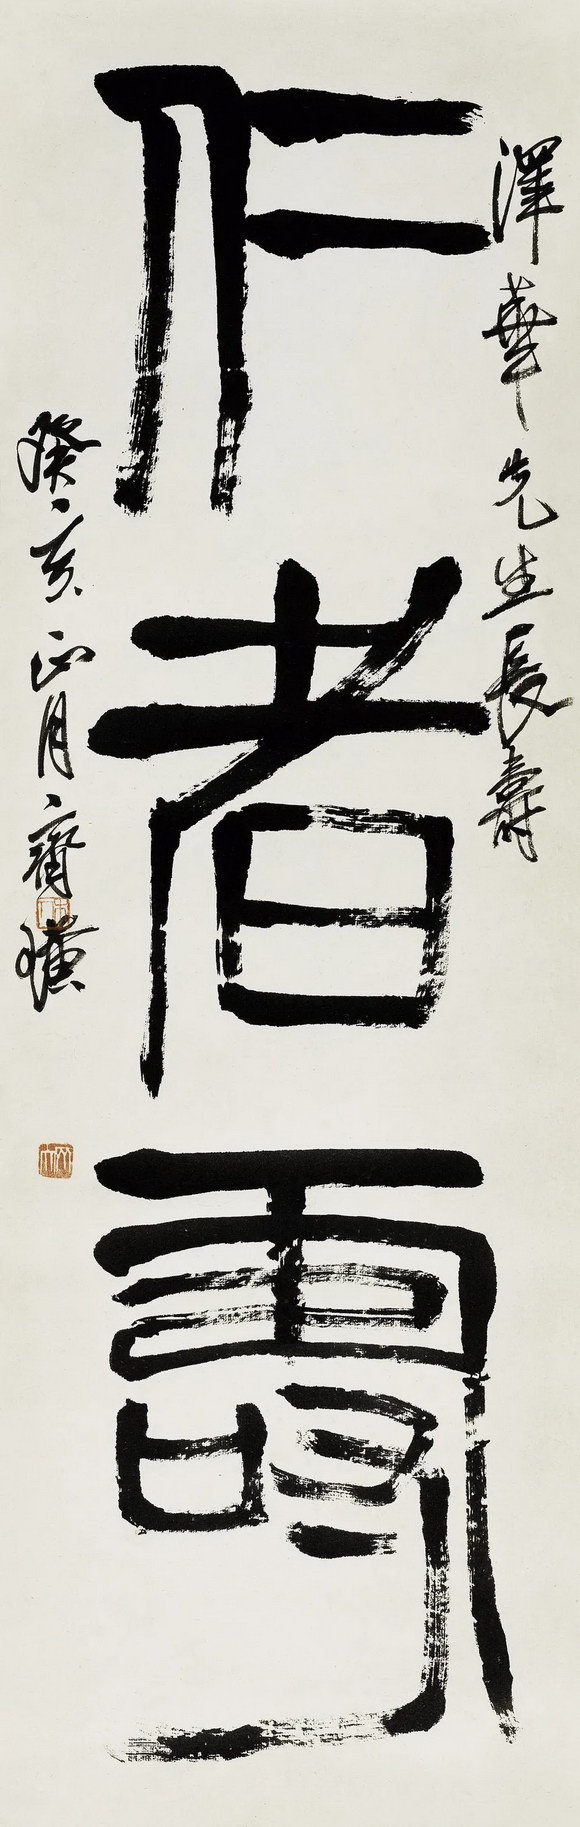 澤華先生長壽
仁者壽
癸亥正月齊璜